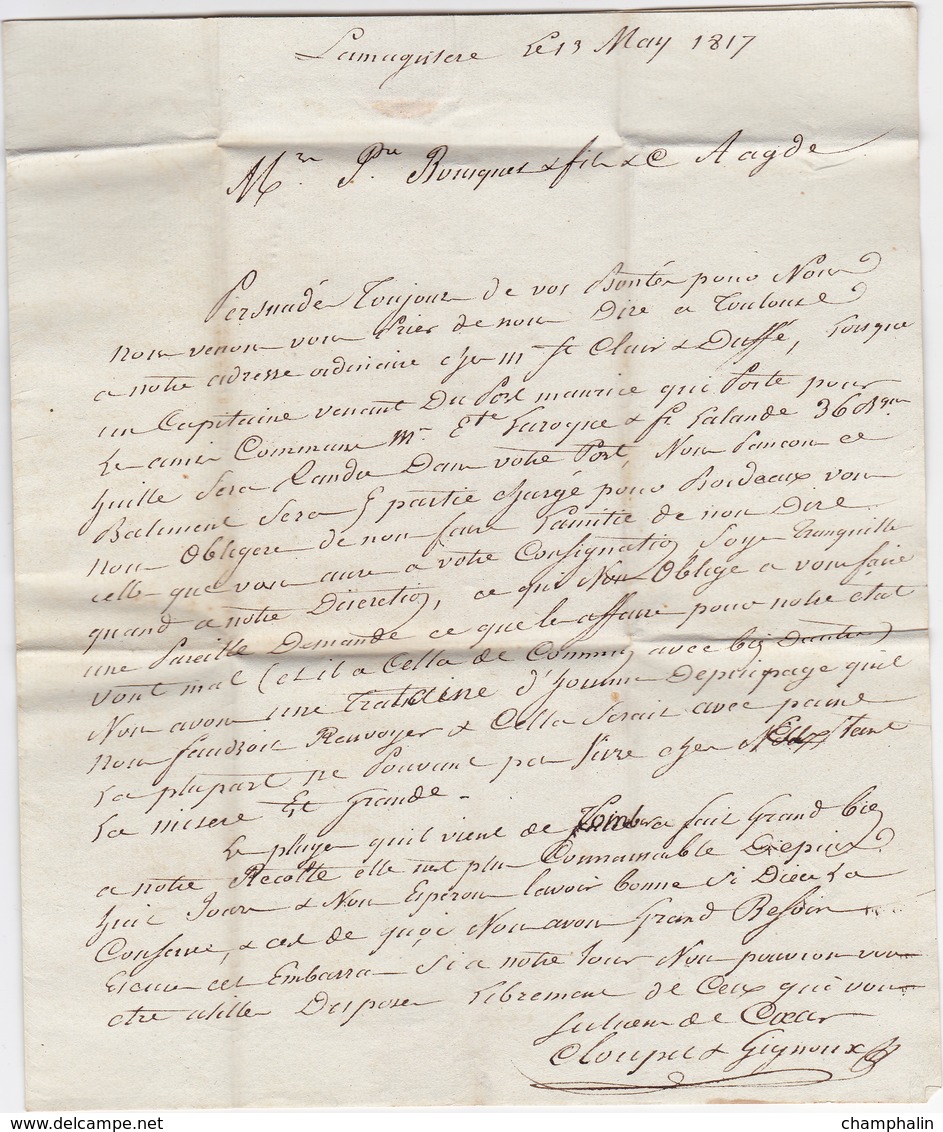 Lamagistere Le 13 May 1817
Mrs. Pre Bousquet & fils & C Aagde
Persuadé Toujour de vos Bontés pour Nous
nous venons vous Prier de nous Dire a Toulouse
a notre adresse ordinaire chez m St Clair & Duffé, Lorsque
un Capitaine venant Du Port maurice qui Porte pour
Le amis Commune Mrs Ete Laroque & fs Lalande 36 Bques
huille Sera Randu Dans votre Port, Nous Pancons ce
Batiment Sera partie chargé pour Bordeaux vous
nous Obligere de nous faire Lamitie de nous Dire
celle que vous aure a votre Consignation Soye tranquille
quand a notre Discretion, ce qui Nous Oblige a vous faire
une Pareille Demande ce que le affaire pour notre etat
vont mal (et il a Cella de Commun avec bien Dautre)
Nous avons une trantaine d'homme Dequipage quil
nous faudroit Ranvoyer & Cella Serait avec paine
La plupart ne Pouvant pas Vivre chez Eux tant
La misere Est Grande.
Le pluye quil vient de Tomber a fait Grand bien
a notre Recolte elle nest plus Connaissable Depuis
huit Jours & Nous Esperons lavoir bonne Si Dieu La
Conserve, & cest de quoi Nous avons Grand Besoin
Si a notre tour Nous pouvions vous
etre utilles Disposes Librement de Ceux qui vous
Saluent de Cœur
Cloupet & Gignoux
champhalin
www.delcampe.net